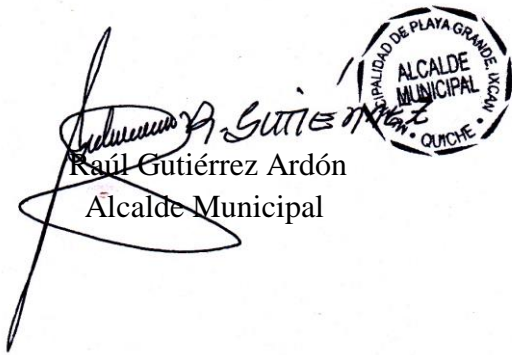 MUNICIPALIDAD DE PLAYA GRANDE, IXCAN
ALCALDE
MUNICIPAL
• QUICHE •
R. GUTIERREZ
Raúl Gutiérrez Ardón
Alcalde Municipal